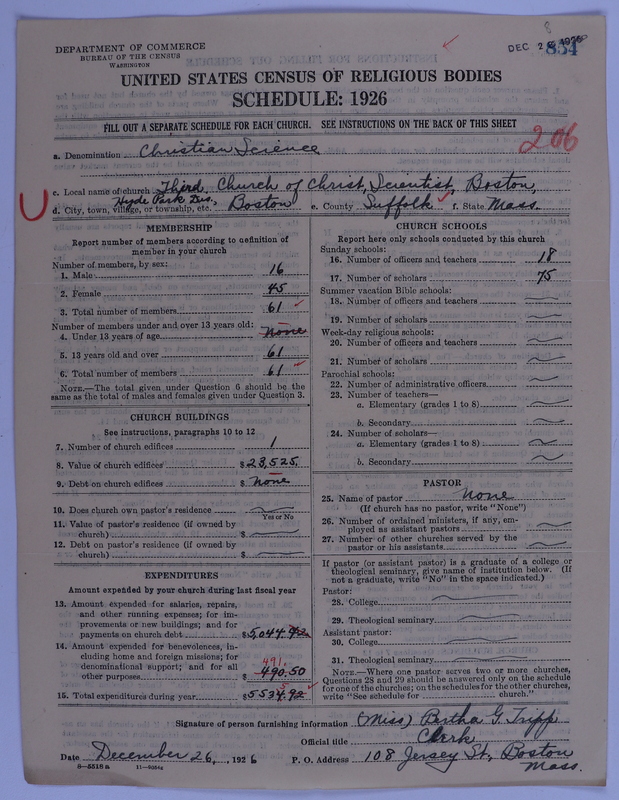 DEPARTMENT OF COMMERCE
BUREAU OF THE CENSUS
WASHINGTON
8
DEC 28 1926
854
UNITED STATES CENSUS OF RELIGIOUS BODIES
SCHEDULE: 1926
FILL OUT A SEPARATE SCHEDULE FOR EACH CHURCH. SEE INSTRUCTIONS ON THE BACK OF THIS SHEET
206
a. Denomination Christian Science
c. Local name of church Third Church of Christ, Scientist, Boston,
Hyde Park Dis.,
d. City, town, village, or township, etc. Boston e. County Suffolk f. State Mass.
MEMBERSHIP
Report number of members according to definition of
member in your church
Number of members, by sex:
1. Male 16
2. Female 45
3. Total number of members 61
Number of members under and over 13 years old:
4. Under 13 years of age None
5. 13 years old and over 61
6. Total number of members 61
NOTE.—The total given under Question 6 should be the
same as the total of males and females given under Question 3.
CHURCH BUILDINGS
See instructions, paragraphs 10 to 12
7. Number of church edifices 1
8. Value of church edifices $23,525.
9. Debt on church edifices $ None
10. Does church own pastor's residence
Yes or No
11. Value of pastor's residence (if owned by
church) $
12. Debt on pastor's residence (if owned by
church) $
EXPENDITURES
Amount expended by your church during last fiscal year
13. Amount expended for salaries, repairs,
and other running expenses; for im-
provements or new buildings; and for
payments on church debt $5,044.42
14. Amount expended for benevolences, in-
cluding home and foreign missions; for
denominational support; and for all
491.
other purposes $ 490.50
5
15. Total expenditures during year $5534.92
CHURCH SCHOOLS
Report here only schools conducted by this church
Sunday schools:
16. Number of officers and teachers 18
17. Number of scholars 75
Summer vacation Bible schools:
18. Number of officers and teachers
19. Number of scholars
Week-day religious schools:
20. Number of officers and teachers
21. Number of scholars
Parochial schools:
22. Number of administrative officers
23. Number of teachers—
a. Elementary (grades 1 to 8)
b. Secondary
24. Number of scholars—
a. Elementary (grades 1 to 8)
b. Secondary
PASTOR
25. Name of pastor None
(If church has no pastor, write "None")
26. Number of ordained ministers, if any, em-
ployed as assistant pastors
27. Number of other churches served by the
pastor or his assistants
If pastor (or assistant pastor) is a graduate of a college or
theological seminary, give name of institution below. (If
not a graduate, write "No" in the space indicated.)
Pastor:
28. College
29. Theological seminary
Assistant pastor:
30. College
31. Theological seminary
NOTE.—Where one pastor serves two or more churches,
Questions 28 and 29 should be answered only on the schedule
for one of the churches; on the schedules for the other churches,
write "See schedule for church."
Signature of person furnishing information (Miss) Bertha G. Tripp
Official title Clerk
Date December 26, 1926 P. O. Address 108 Jersey St., Boston
Mass.
8—5518a 11—8084s